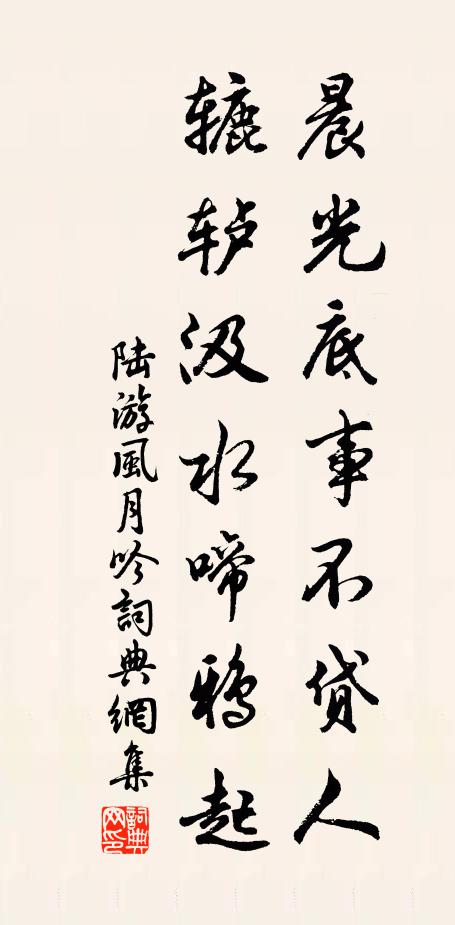 晨光底事不贷人
辘轳汲水啼鸦起
陆游風月吟詞典網集
詞典網印